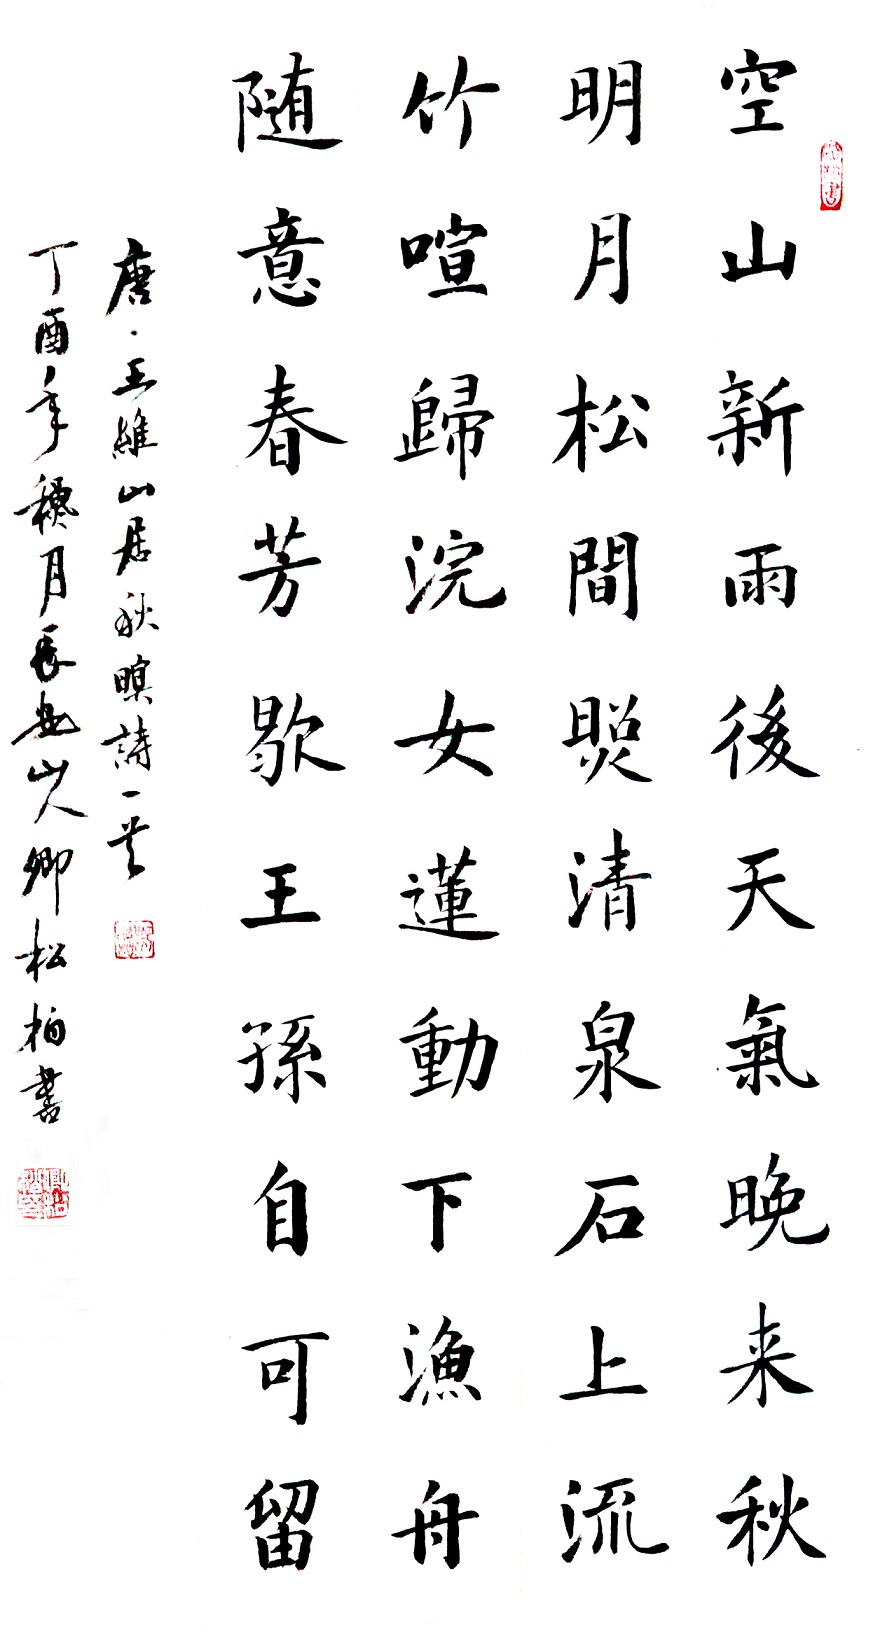 空山新雨後天氣晚来秋
明月松間照清泉石上流
竹喧歸浣女蓮動下漁舟
随意春芳歇王孫自可留
唐·王維山居秋暝詩一首
丁酉年穐月長安山人卿松柏書